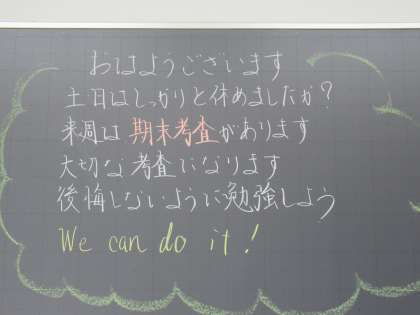 おはようございます
土日はしっかりと休めましたか?
来週は期末考査があります
大切な考査になります
後悔しないように勉強しよう
We can do it!